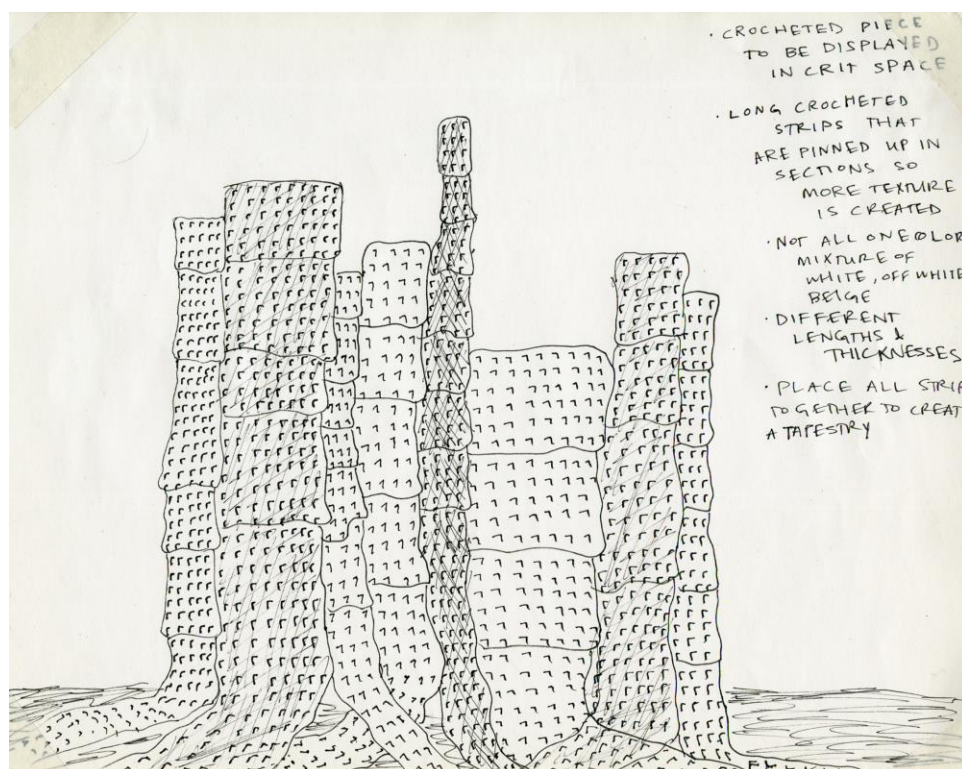 · CROCHETED PIECE
TO BE DISPLAYED
IN CRIT SPACE
· LONG CROCHETED
STRIPS THAT
ARE PINNED UP IN
SECTIONS SO
MORE TEXTURE
IS CREATED
· NOT ALL ONE COLOR
MIXTURE OF
WHITE, OFF WHITE
BEIGE
· DIFFERENT
LENGTHS &
THICKNESSES
· PLACE ALL STRIP
TOGETHER TO CREAT
A TAPESTRY